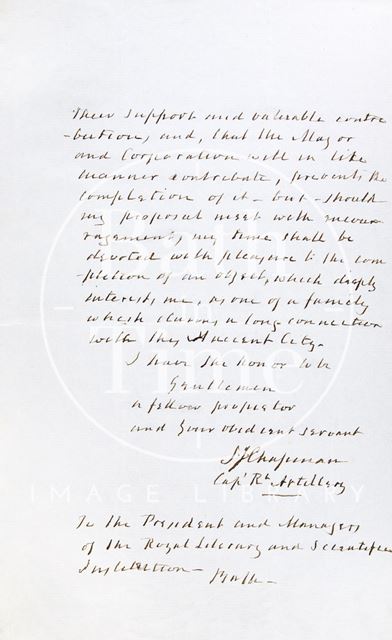 their support and valuable contri
-bution, and, that the Mayor
and Corporation will in like
manner contribute, prevents the
completion of it - but - should
my proposal meet with encou-
ragement, my time shall be
devoted with pleasure to the com
-pletion of an object, which deeply
interests me, as one of a family
which claims a long connection
with this Ancient City.
I have the honor to be
Gentlemen
a fellow proprietor
and your obedient servant
Chapman
Capt Rl Artillery
To the President and Managers
of the Royal Literary and Scientific
Institution - Bath -
Bath in Time
IMAGE LIBRARY